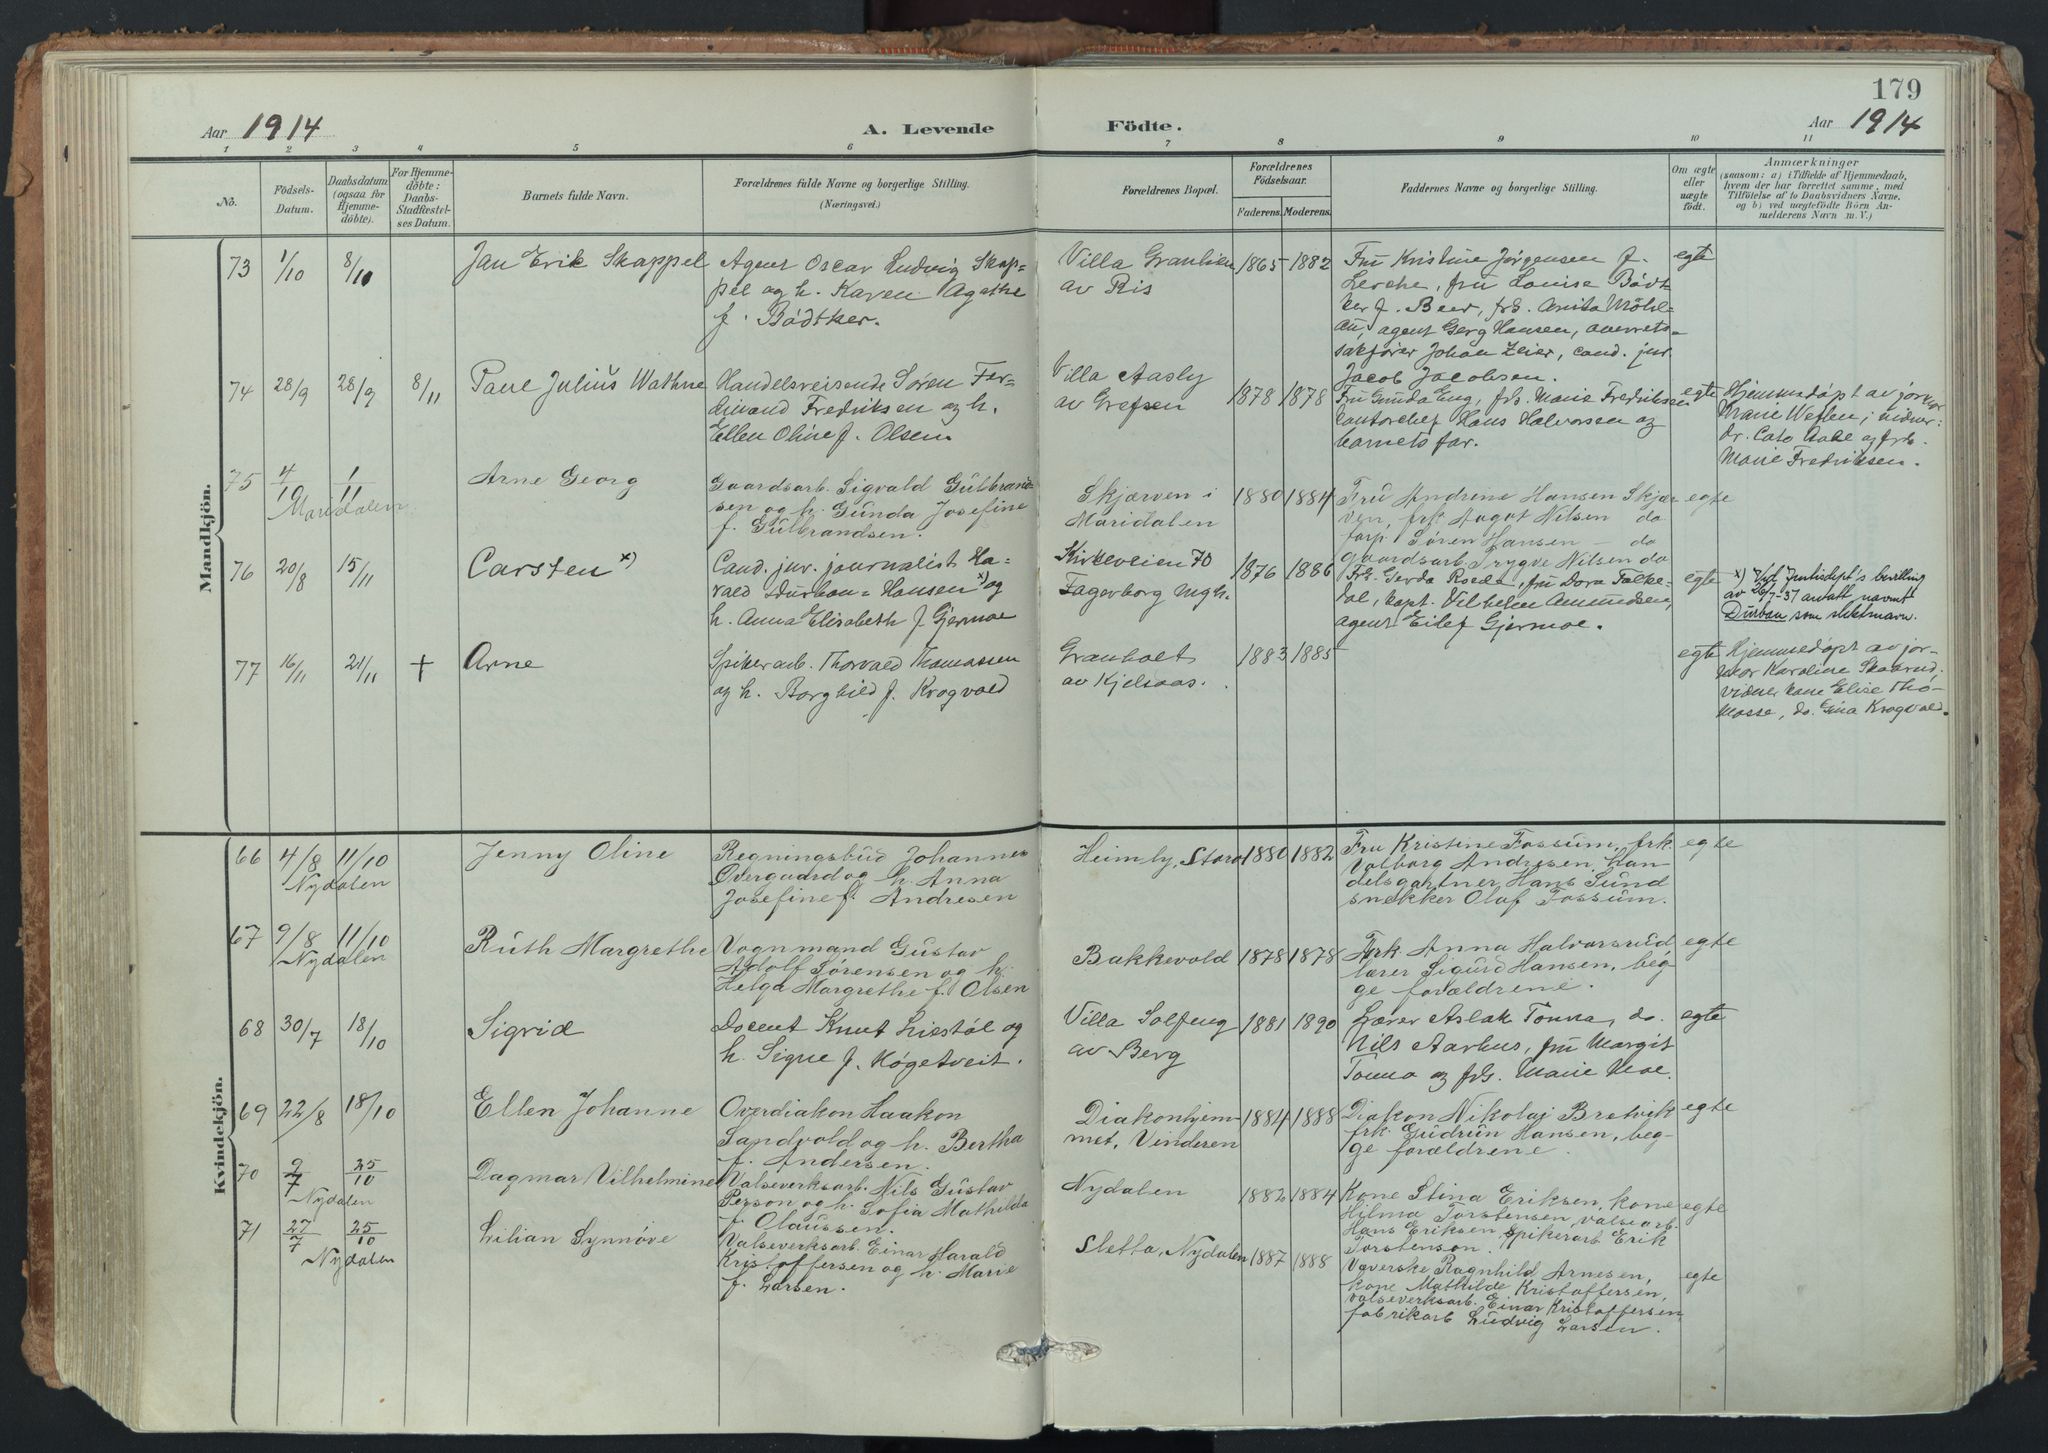 179
Aar 1914
A. Levende Födte.
Aar 1914
1 2 3 4 5 6 7 8 9 10 11
No.
Födsels-
Datum.
Daabsdatum
(ogsaa for
Hjemme-
döbte).
For Hjemme-
döbte:
Daabs-
Stadfæstel-
ses Datum.
Barnets fulde Navn.
Forældrenes fulde Navne og borgerlige Stilling.
(Næringsvei.)
Forældrenes Bopæl.
Forældrenes
Födselsaar.
Faderens. Moderens.
Faddernes Navne og borgerlige Stilling.
Om ægte
eller
uægte
födt.
Anmærkninger
(saasom: a) i Tilfælde af Hjemmedaab,
hvem der har forrettet samme, med
Tilföielse af to Daabsvidners Navne,
og b) ved uægtefödte Börn An-
melderens Navn m. V.)
Mandkjön.
73 1/10 8/10 Jan Erik Skappel
Agent Oscar Ludvig Skap-
pel og h. Karen Agathe
f. Bödtker.
Villa Granlien
av Ris
1865 1882
Fru Kristine Jørgensen f.
Lerche, fru Louise Bödt
ker f. Beer, frk. Anita Möhl-
au, agent Gerg Hansen, overrets-
sakfører Johan Zeier, cand. jur.
Jacob Jacobsen.
egte
74 28/9 28/9 8/11 Paul Julius Wathne
Handelsreisende Søren Fer-
dinand Fredriksen og h.
Ellen Oline f. Olsen
Villa Aasly
av Grefsen
1878 1878
Fru Gunda Eng, frk. Marie Fredriksen
kontorchef Hans Halvorsen og
barnets far.
egte
Hjemmedøpt av jormor
Marie Weflen; vidner:
dr. Cato Aall og frk.
Marie Fredriksen.
75 4/10 1/11 Arne Georg
Maridalen
Gaardsarb. Sigvald Gulbrand-
sen og h. Gunda Josefine
f. Gulbrandsen.
Skjærven i
Maridalen
1880 1884
Fru Andrene Hansen Skjær
ven, frk Aagot Nilsen do
forp. Søren Hansen - do
gaardsarb. Trygve Nilsen do
egte
76 20/8 15/11 Carsten x)
Cand. jur. journalist Ha-
vald Durban-Hansen x) og
h. Anna Elisabeth f Gjermoe
Kirkeveien 70
Fagerborg mgh.
1876 1886
Frk. Gerda Roede, fru Dora Falke-
dal, kapt. Vilhelm Amundsen,
agent Eilef Gjermoe.
egte
x) Ved Justisdept's bevilling
av 26/7-37 antatt navnet
Durban som slektsnavn.
77 16/11 21/11 + Arne
Spikerarb. Thorvald Thomassen
og h. Borghild f. Krogvold
Granholt
av Kjelsaas.
1883 1885
egte
Hjemmedøpt av jor-
mor Karoline Skaarud;
vidner kone Elise Tho-
masse, do. Gina Krogvold.
Kvindekjön.
66 4/8 11/10 Jenny Oline
Nydalen
Regningsbud Johannes
Overgaard og h. Anna
Josefine f. Andresen
Heimly, Storo
1880 1882
Fru Kristine Fossum, frk
Valborg Andresen, han-
delsgartner Hans Sund
snekker Olaf Fossum.
egte
67 9/8 11/10 Ruth Margrethe
Nydalen
Vognmand Gustav
Adolf Sørensen og h.
Helga Margrethe f. Olsen
Bakkevold
1878 1878
Frk Anna Halvorsrud
lærer Sigurd Hansen, beg-
ge forældrene.
egte
68 30/7 18/10 Sigrid
Docent Knut Liestøl og
h. Signe f. Høgetveit.
Villa Solfeng
av Berg
1881 1890
Lærer Aslak Tonna, do.
Nils Aarhus, fru Margit
Tonna og frk. Marie Moe.
egte
69 22/8 18/10 Ellen Johanne
Overdiakon Haakon
Sandvold og h. Bertha
f. Andersen.
Diakonhjem-
met, Vinderen
1884 1888
Diakon Nikolai Bretvik
frk. Gudrun Hansen, beg-
ge forældrene.
egte
70 9/7 25/10 Dagmar Vilhelmine
Nydalen
Valseverksarb. Nils Gustav
Person og h. Sofia Mathilda
f. Olaussen.
Nydalen
1882 1884
Kone Stina Eriksen, kone
Hilma Torstensen, valsearb.
Hans Eriksen, spikerarb Erik
Torstenson.
egte
71 27/7 25/10 Lilian Synnöve
Nydalen
Valseverksarb. Einar Harald
Kristoffersen og h. Marie
f. Larsen.
Sletta, Nydalen
1887 1888
Væverske Ragnhild Arnesen,
kone Mathilde Kristoffersen,
valseverksarb. Einar Kristoffersen
fabrikarb Ludvig Larsen.
egte